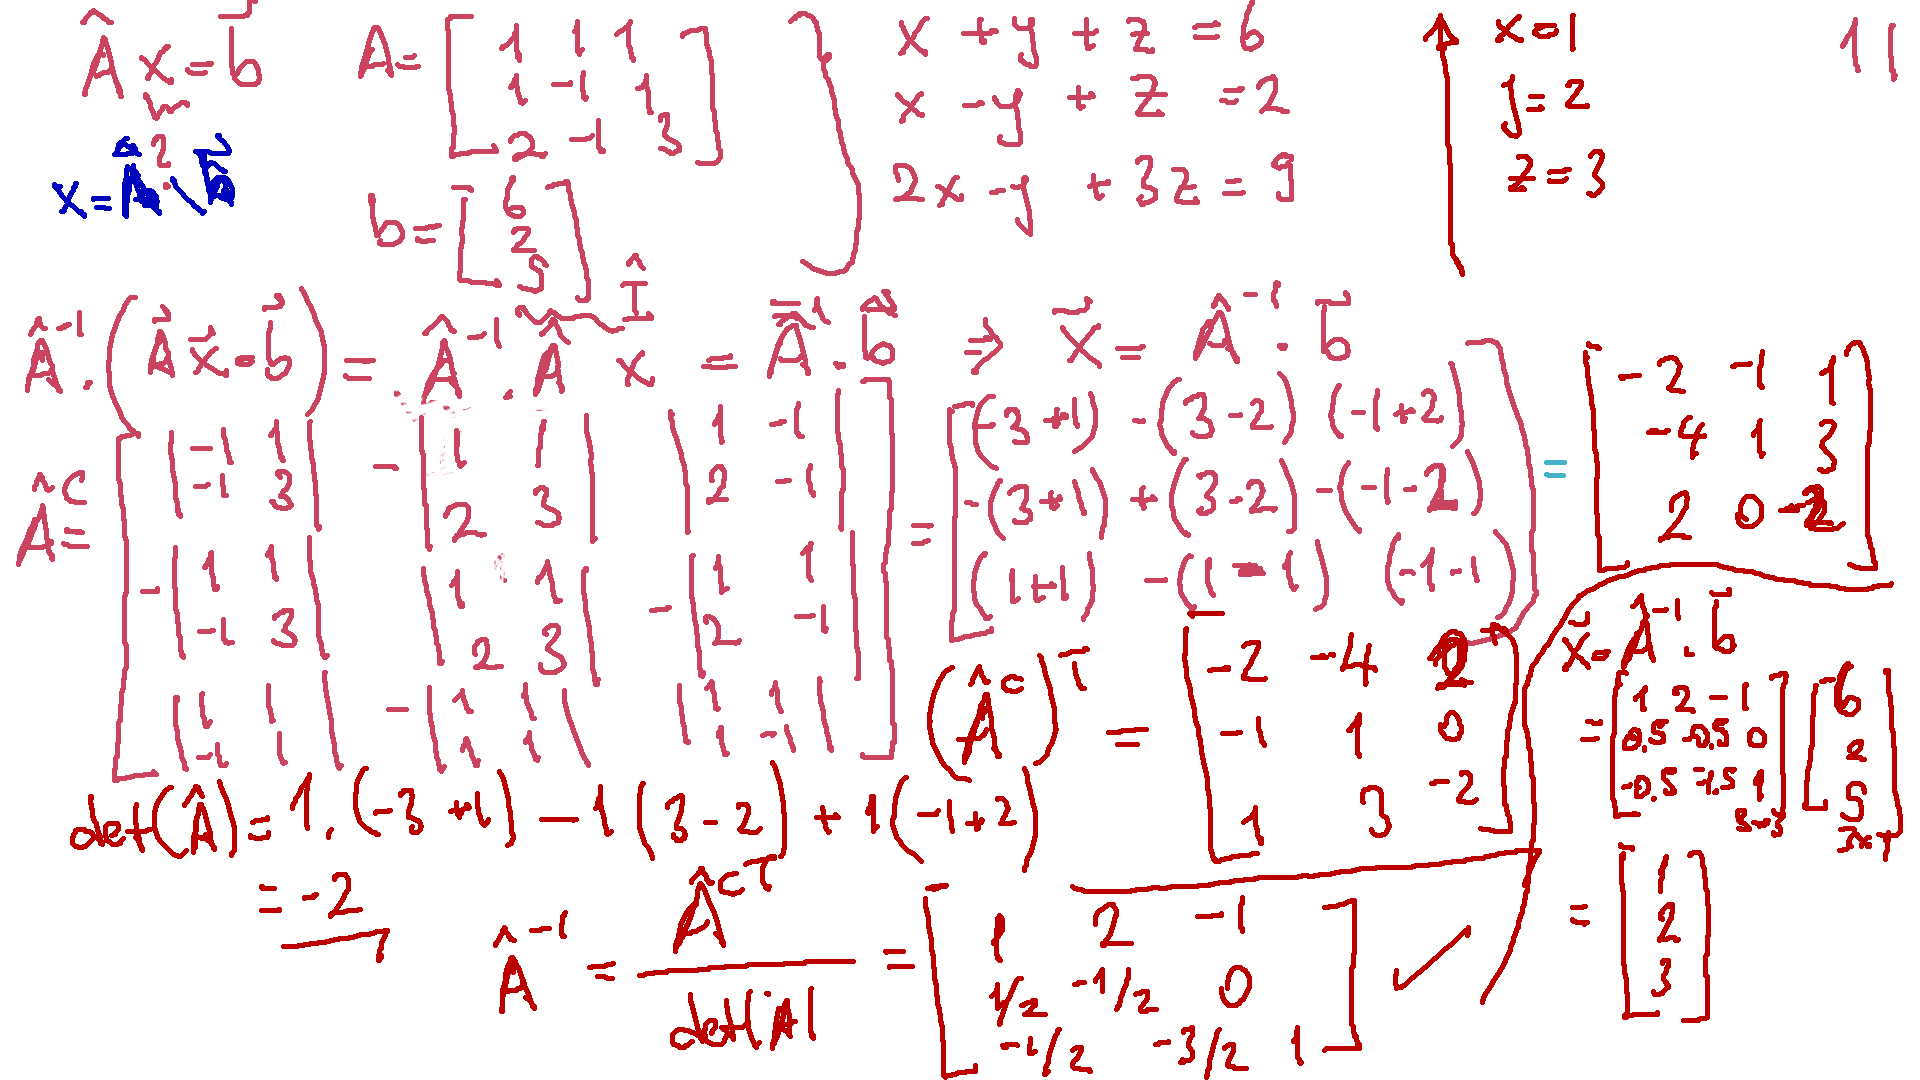 Â x = b⃗
?
x = Â \ b⃗
A = [ 1 1 1
1 -1 1
2 -1 3 ]
b = [ 6
2
5 ]
x + y + z = 6
x - y + z = 2
2x - y + 3z = 9
x = 1
y = 2
z = 3
11
Â⁻¹ . ( A⃗ x⃗ = b⃗ ) = Â⁻¹ . Â x = A⁻¹ . b⃗ ⇒ x⃗ = Â⁻¹ . b⃗
Î
Âᶜ = [ |-1 1| -|1 1| |1 -1|
|-1 3| |2 3| |2 -1|
-|1 1| |1 1| -|1 1|
|-1 3| |2 3| |2 -1|
|1 1| -|1 1| |1 1|
|-1 1| |1 1| |1 -1| ]
= [ (-3+1) -(3-2) (-1+2)
-(3+1) +(3-2) -(-1-2)
(1+1) -(1-1) (-1-1) ]
= [ -2 -1 1
-4 1 3
2 0 -2 ]
(Âᶜ)ᵀ = [ -2 -4 2
-1 1 0
1 3 -2 ]
det(Â) = 1.(-3+1) - 1(3-2) + 1(-1+2)
= -2
Â⁻¹ = Âᶜᵀ / det|A| = [ 1 2 -1
1/2 -1/2 0
-1/2 -3/2 1 ] ✓
x⃗ = Â⁻¹ . b⃗
= [ 1 2 -1
0.5 -0.5 0
-0.5 -1.5 1 ] [ 6
2
5 ]
3×3 3×1
= [ 1
2
3 ]